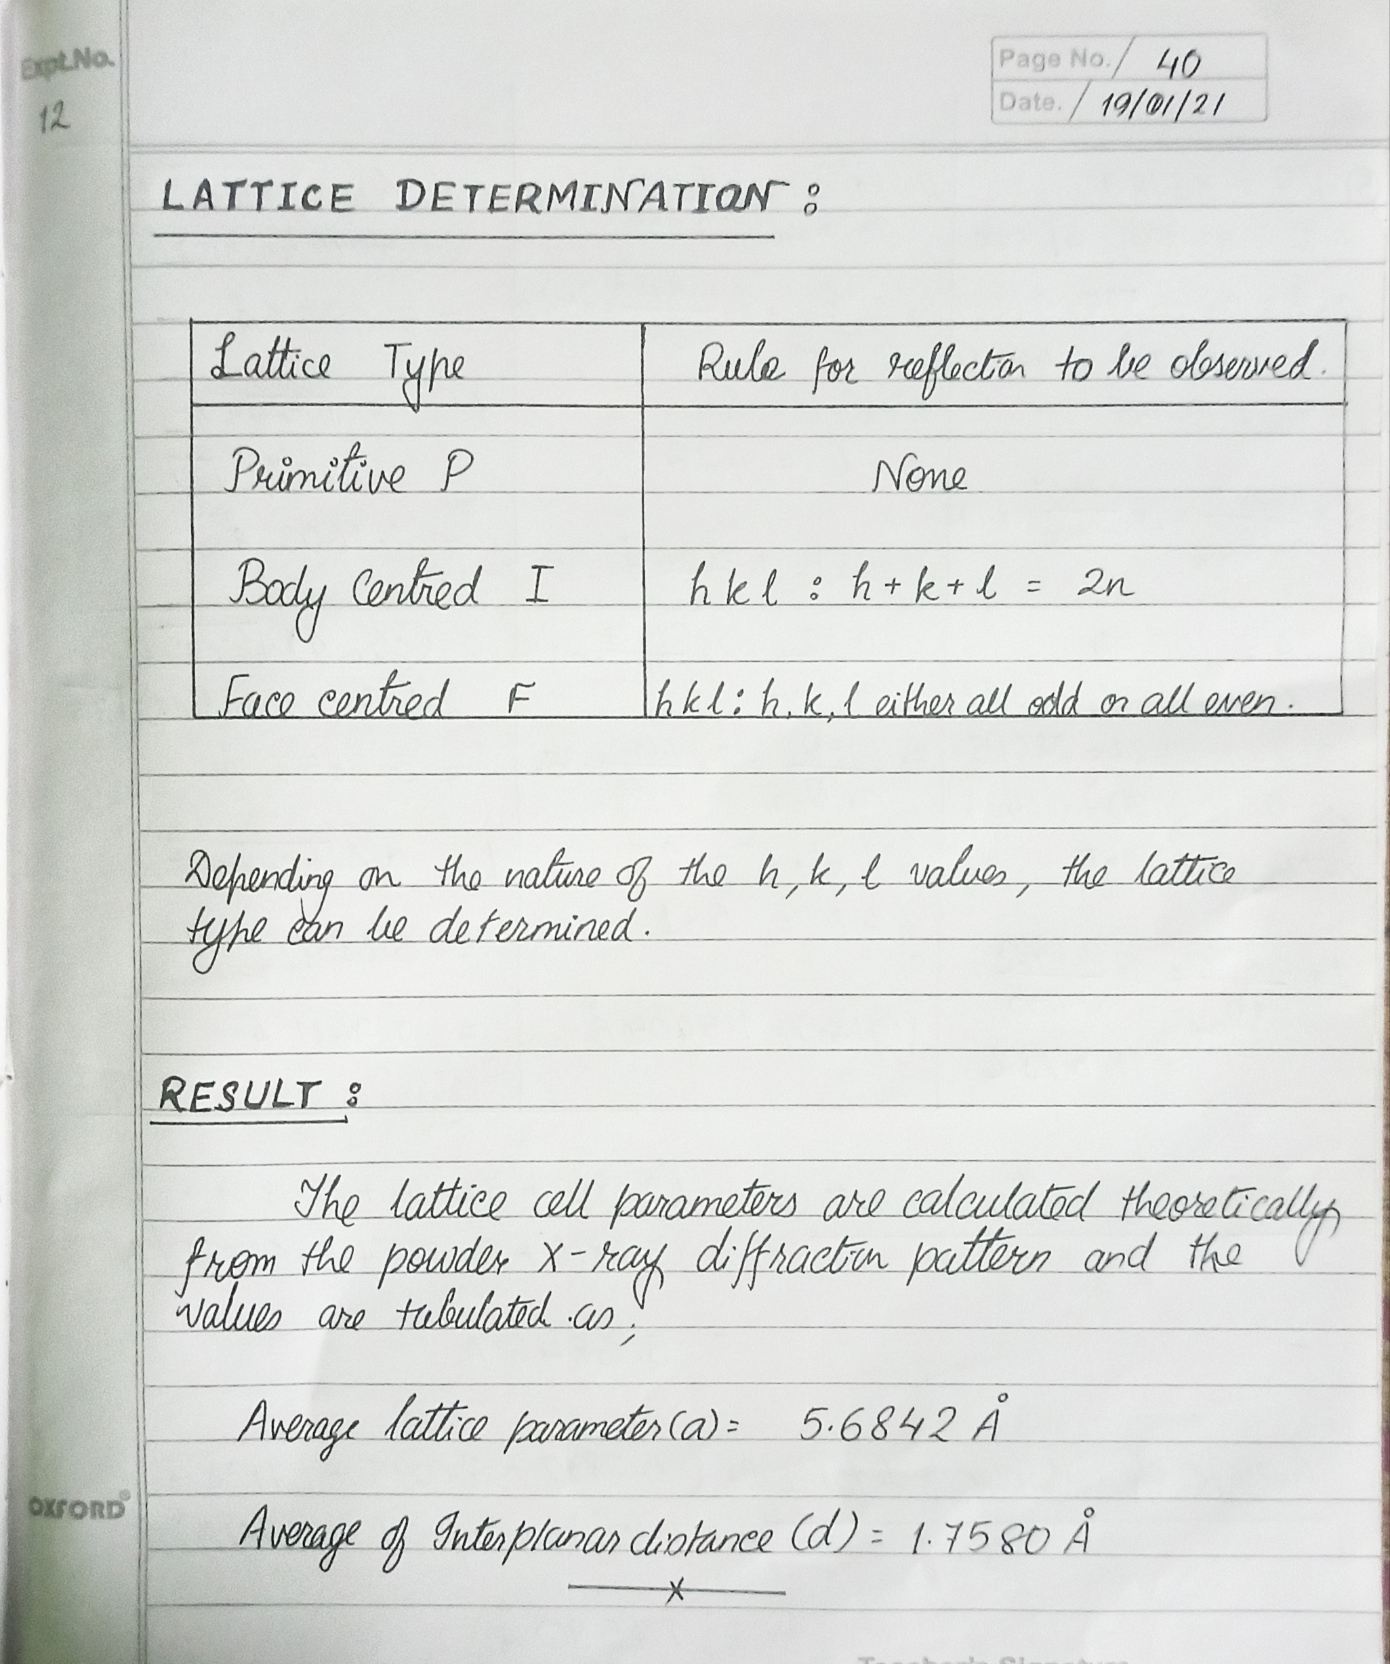 Expt.No.
12
Page No. / 40
Date. / 19/01/21
LATTICE DETERMINATION :
Lattice Type Rule for reflection to be observed.
Primitive P None
Body Centred I h k l : h + k + l = 2n
Face centred F h k l : h, k, l either all odd or all even.
Depending on the nature of the h, k, l values, the lattice
type can be determined.
RESULT :
The lattice cell parameters are calculated theoretically
from the powder X-ray diffraction pattern and the
values are tabulated as;
Average lattice parameter (a) = 5.6842 Å
OXFORD®
Average of Interplanar distance (d) = 1.7580 Å
x